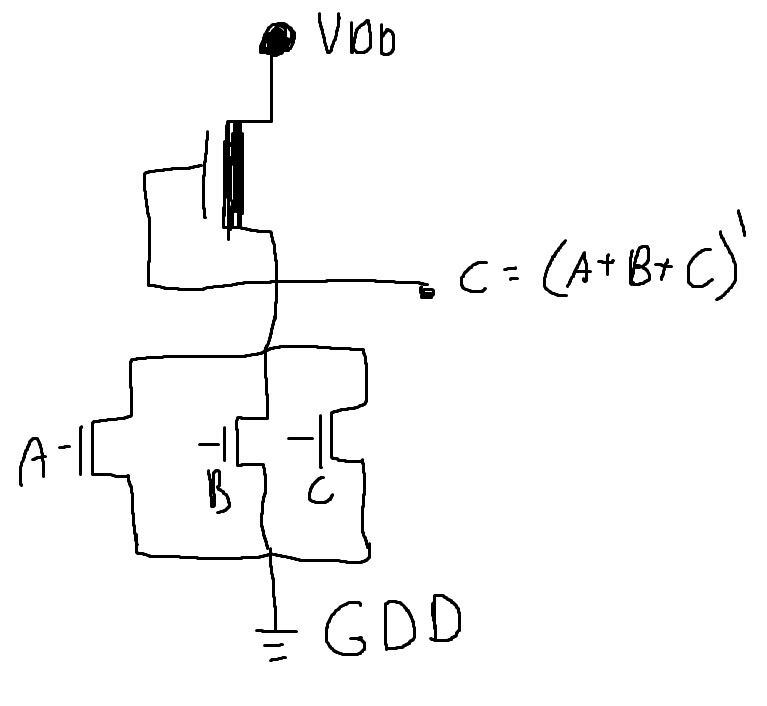 VDD
C = (A+B+C)'
A
B
C
GDD